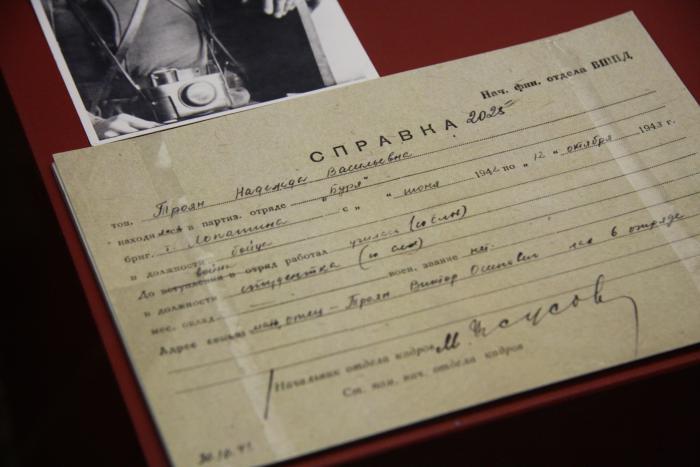 Нач. фин. отдела ВШПД
СПРАВКА 2025
тов. Троян Надежда Васильевна
находилась в партиз. отряде „Буря"
бриг. т. Лопатина с „ " июня 1942 по „12" октября 1943
в должности бойца
До вступления в отряд работал училась
в должности студентка
мес. оклад воен. звание нет.
Адрес семьи отец - Троян Виктор в отряде
Начальник отдела кадров
Ст. пом. нач. отдела кадров